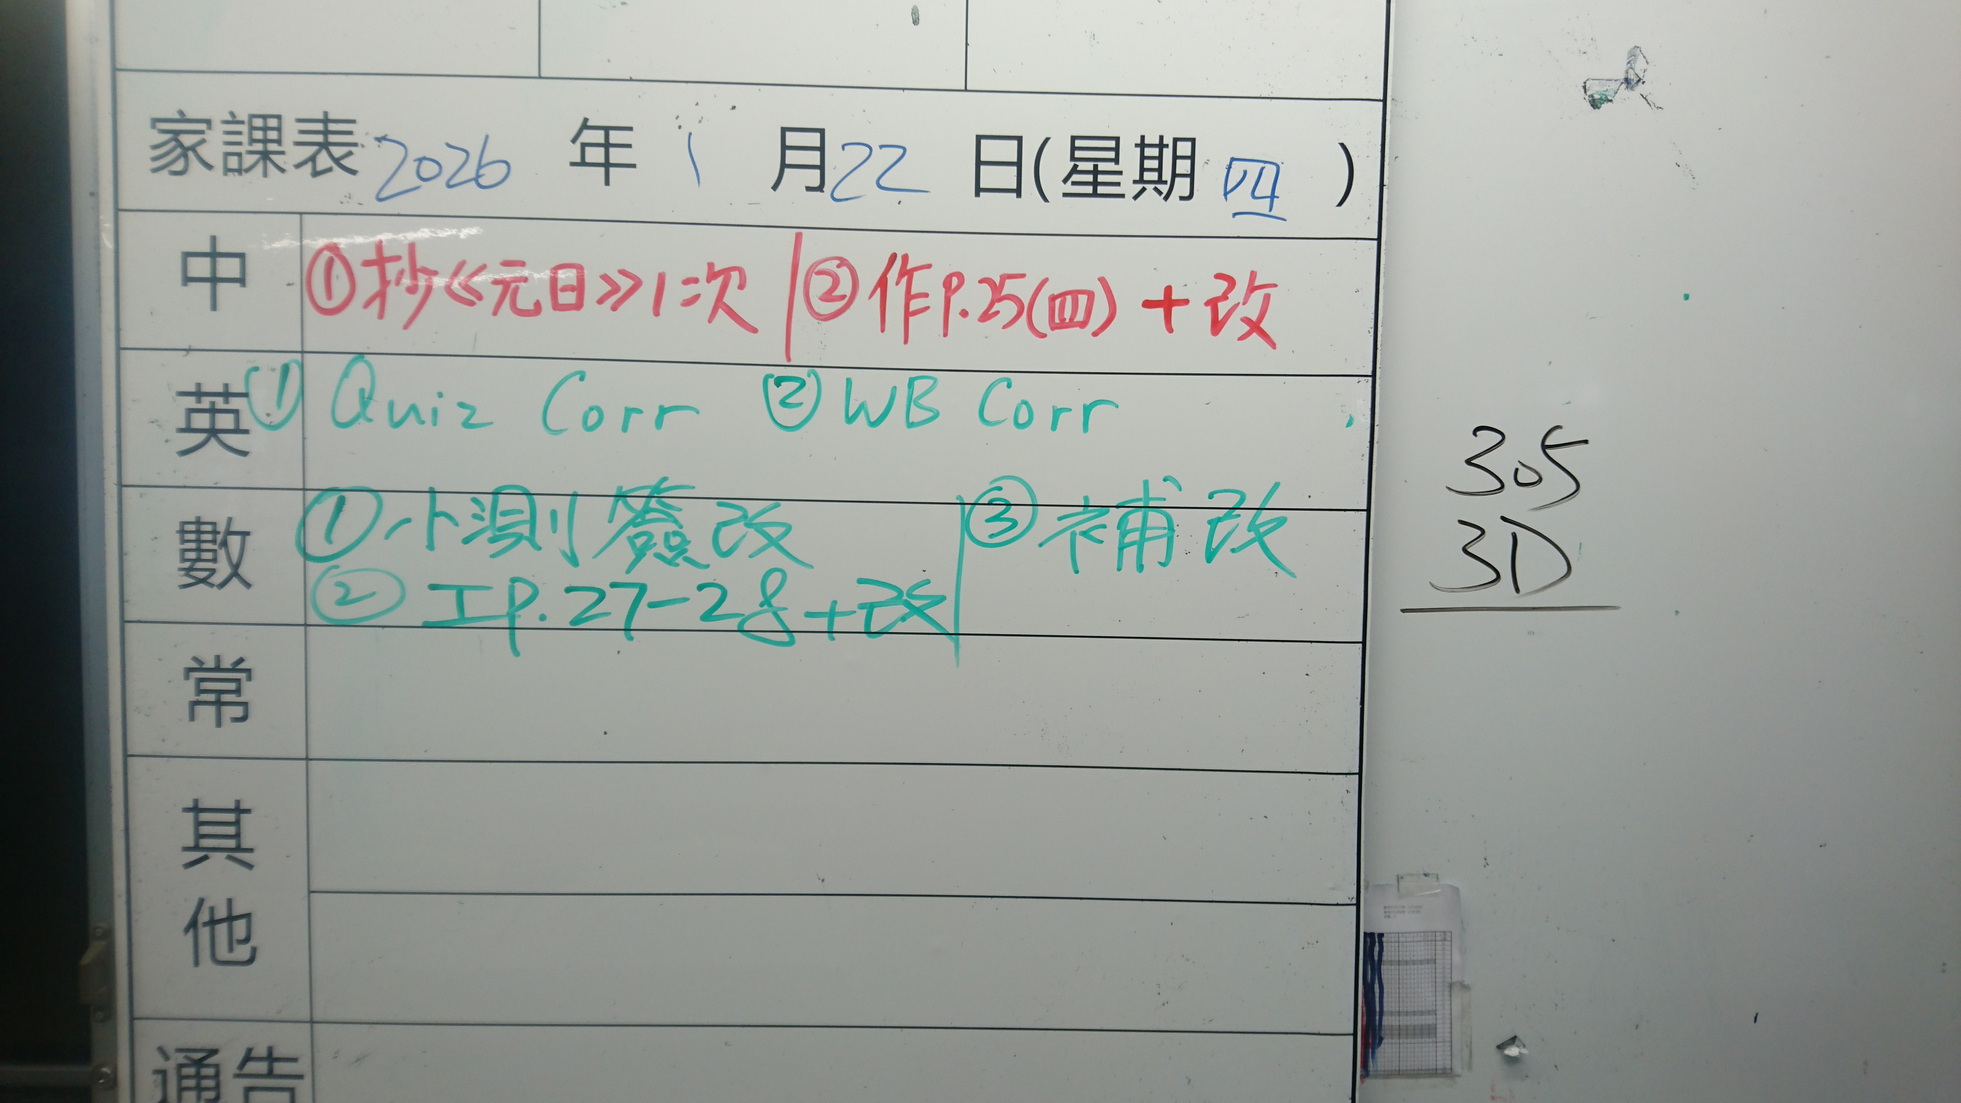 家課表 2026 年 1 月 22 日(星期 四 )
中 ①抄《元日》1次 | ②作P.25(四) + 改
英 ① Quiz Corr ② WB Corr
數 ①小測簽改 | ③補改
②工P.27-28+改
常
其他
通告
305
3D